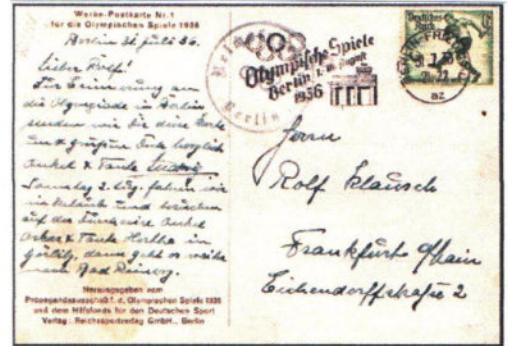 Werbe-Postkarte Nr. 1
für die Olympischen Spiele 1936
Berlin 31 Juli 36.
Lieber Rolf!
Zur Erinnerung an
die Olympiade in Berlin
senden wir Dir diese Karte
und grüßen Euch herzlich
Onkel & Tante
Samstag 2. Aug. fahren wir
in Urlaub und besuchen
auf der Onkel
& Tante Hertha in
dann geht es weiter
nach Bad Reinerz.
Herausgegeben vom
Propagandaausschuß f. d. Olympischen Spiele 1936
und dem Hilfsfonds für den Deutschen Sport
Verlag: Reichssportverlag GmbH., Berlin
Olympische Spiele
Berlin 1.-16. August
1936
Berlin
Deutsches
Reich
6
BERLIN-FRIEDENAU
az
Herrn
Rolf Klausch
Frankfurt a/Main
Eichendorffstraße 2